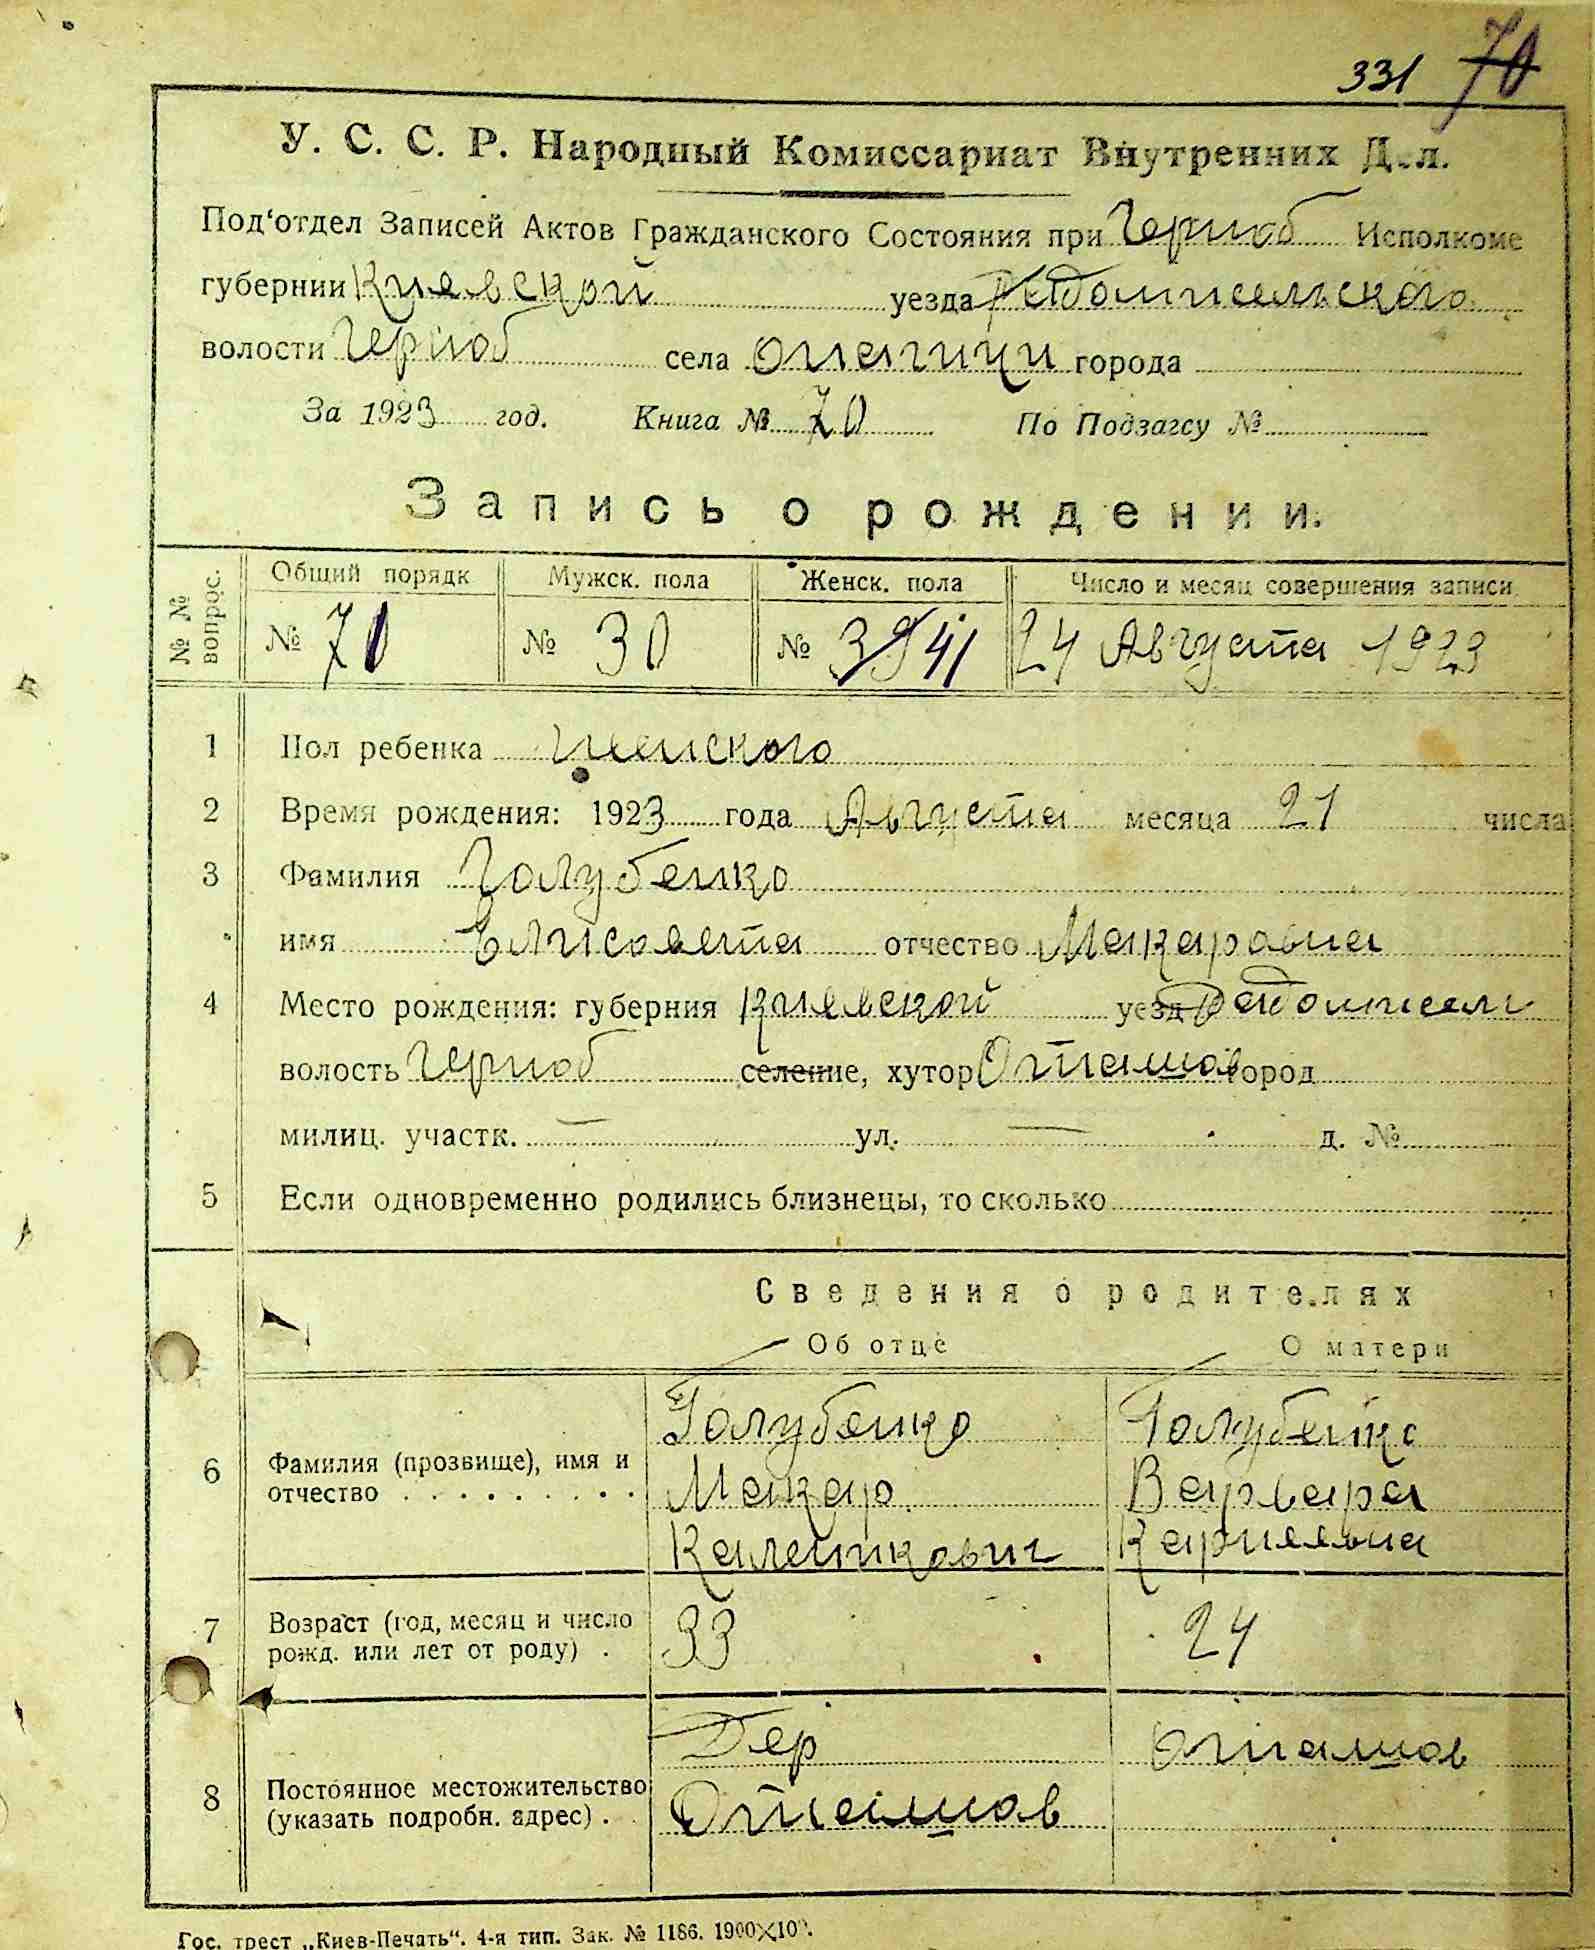 331 70
У. С. С. Р. Народный Комиссариат Внутренних Дел.
Под‘отдел Записей Актов Гражданского Состояния при Черноб Исполкоме
губернии Киевской уезда Радомисельского
волости Черноб села опачичи города
За 1923 год. Книга № 70 По Подзагсу №
Запись о рождении.
№ № вопрос. Общий порядк Мужск. пола Женск. пола Число и месяц совершения записи
№ 70 № 30 № 39 41 24 Августа 1923
1 Пол ребенка женского
2 Время рождения: 1923 года Августа месяца 21 числа
3 Фамилия Голубенко
имя Елисовета отчество Макаровна
4 Место рождения: губерния Киевской уезд Радомисел
волость Черноб селение, хутор Оташов город
милиц. участк. — ул. — д. №
5 Если одновременно родились близнецы, то сколько
Сведения о родителях
Об отце О матери
Голубенко Голубенко
6 Фамилия (прозвище), имя и отчество Макар Варвара
Каленикович Карпеевна
7 Возраст (год, месяц и число рожд. или лет от роду) 33 24
Дер Оташов
8 Постоянное местожительство (указать подробн. адрес) Оташов
Гос. трест „Киев-Печать“. 4-я тип. Зак. № 1186.